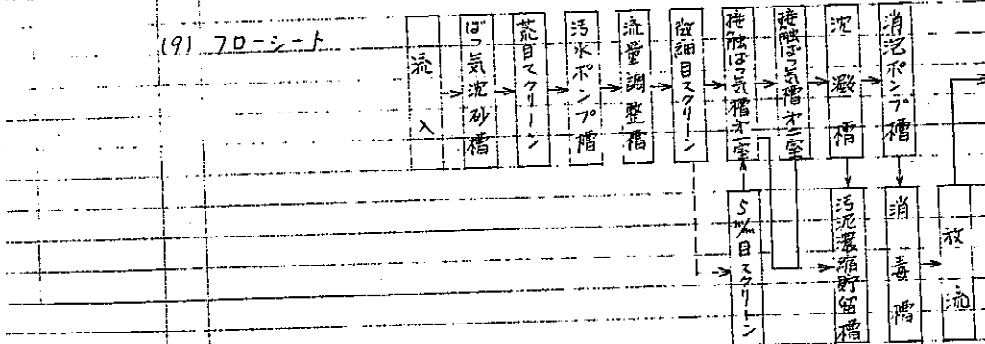 (9) フローシート
流入
ばっ気沈砂槽
荒目スクリーン
汚水ポンプ槽
流量調整槽
微細目スクリーン
接触ばっ気槽才一室
接触ばっ気槽才二室
沈澱槽
消泡ポンプ槽
5m/m目スクリーン
汚泥濃縮貯留槽
消毒槽
放流